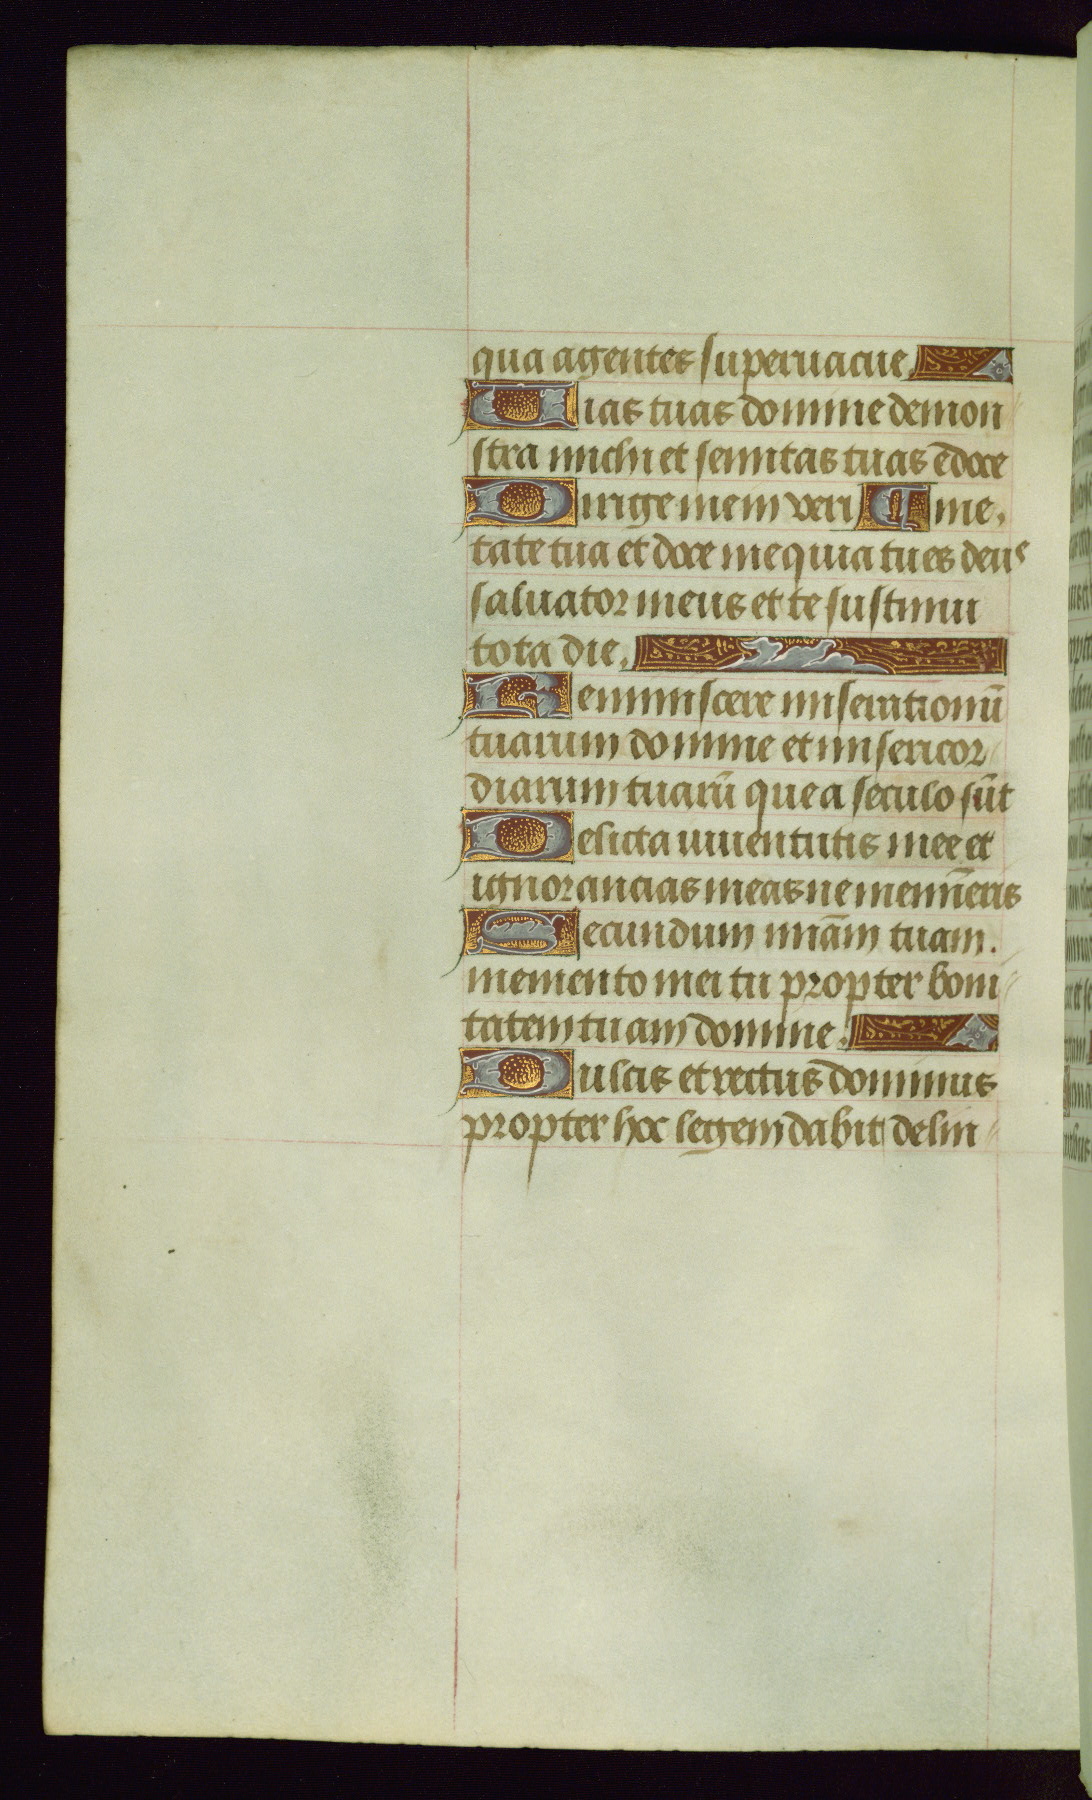 qua agentes superuacue.
Uias tuas domine demon
stra michi et semitas tuas edoce
Dirige me in veri ¶ me.
tate tua et doce me quia tu es deus
saluator meus et te sustinui
tota die.
Reminiscere miserationū
tuarum domine et misericor
diarum tuarū que a seculo sūt
Delicta iuuentutis mee et
ignorancias meas ne memīeris
Secundum miām tuam.
memento mei tu propter boni
tatem tuam domine.
Dulcis et rectus dominus
propter hoc legem dabit delin